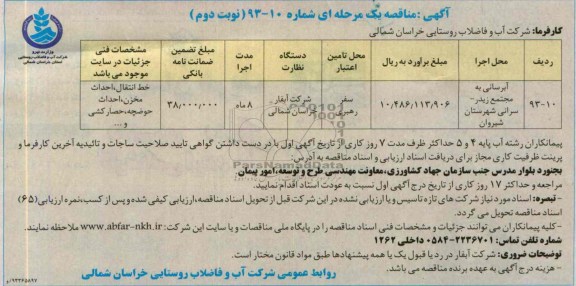 آگهی :مناقصه یک مرحله ای شماره ۱۰-۹۳ (نوبت دوم)
کارفرما: شرکت آب و فاضلاب روستایی خراسان شمالی
وزارت نیرو
شرکت آب و فاضلاب روستایی
استان خراسان شمالی
ردیف
محل اجرا
مبلغ برآورد به ریال
محل تامین اعتبار
دستگاه نظارت
مدت اجرا
مبلغ تضمین ضمانت نامه بانکی
مشخصات فنی جزئیات در سایت موجود می باشد
۹۳-۱۰
آبرسانی به مجتمع زیدر-سرانی شهرستان شیروان
۱۰/۴۸۶/۱۱۳/۹۰۶
سفر رهبری
شرکت آبفار خراسان شمالی
۸ ماه
۳۸/۰۰۰/۰۰۰
خط انتقال،احداث مخزن،احداث حوضچه،حصارکشی و ...
پیمانکاران رشته آب پایه ۴ و ۵ حداکثر ظرف مدت ۷ روز کاری از تاریخ آگهی اول با در دست داشتن گواهی تایید صلاحیت ساجات و تائیدیه آخرین کارفرما و
پرینت ظرفیت کاری مجاز برای دریافت اسناد ارزیابی و اسناد مناقصه به آدرس:
بجنورد بلوار مدرس جنب سازمان جهاد کشاورزی،معاونت مهندسی طرح و توسعه،امور پیمان
مراجعه و حداکثر ۱۷ روز کاری از تاریخ درج آگهی اول نسبت به عودت اسناد اقدام نمایید.
تبصره: اسناد مورد نیاز شرکت های تازه تاسیس و یا ارزیابی نشده در این شرکت قبل از تحویل اسناد مناقصه،ارزیابی کیفی شده و پس از کسب،نمره ارزیابی(۶۵)
اسناد مناقصه تحویل می گردد.
-کلیه پیمانکاران می توانند جزئیات و مشخصات فنی اسناد مناقصه را در پایگاه ملی مناقصات و یا سایت این شرکت: www.abfar-nkh.ir ملاحظه نمایند.
شماره تلفن تماس: ۲۲۳۶۷۰۱-۰۵۸۴ داخلی ۱۲۶۲
توضیحات ضروری: شرکت آبفار در رد یا قبول یک یا همه پیشنهادها طبق مواد قانون مختار است.
- هزینه درج آگهی به عهده برنده مناقصه می باشد.
روابط عمومی شرکت آب و فاضلاب روستایی خراسان شمالی
ParsNamadData